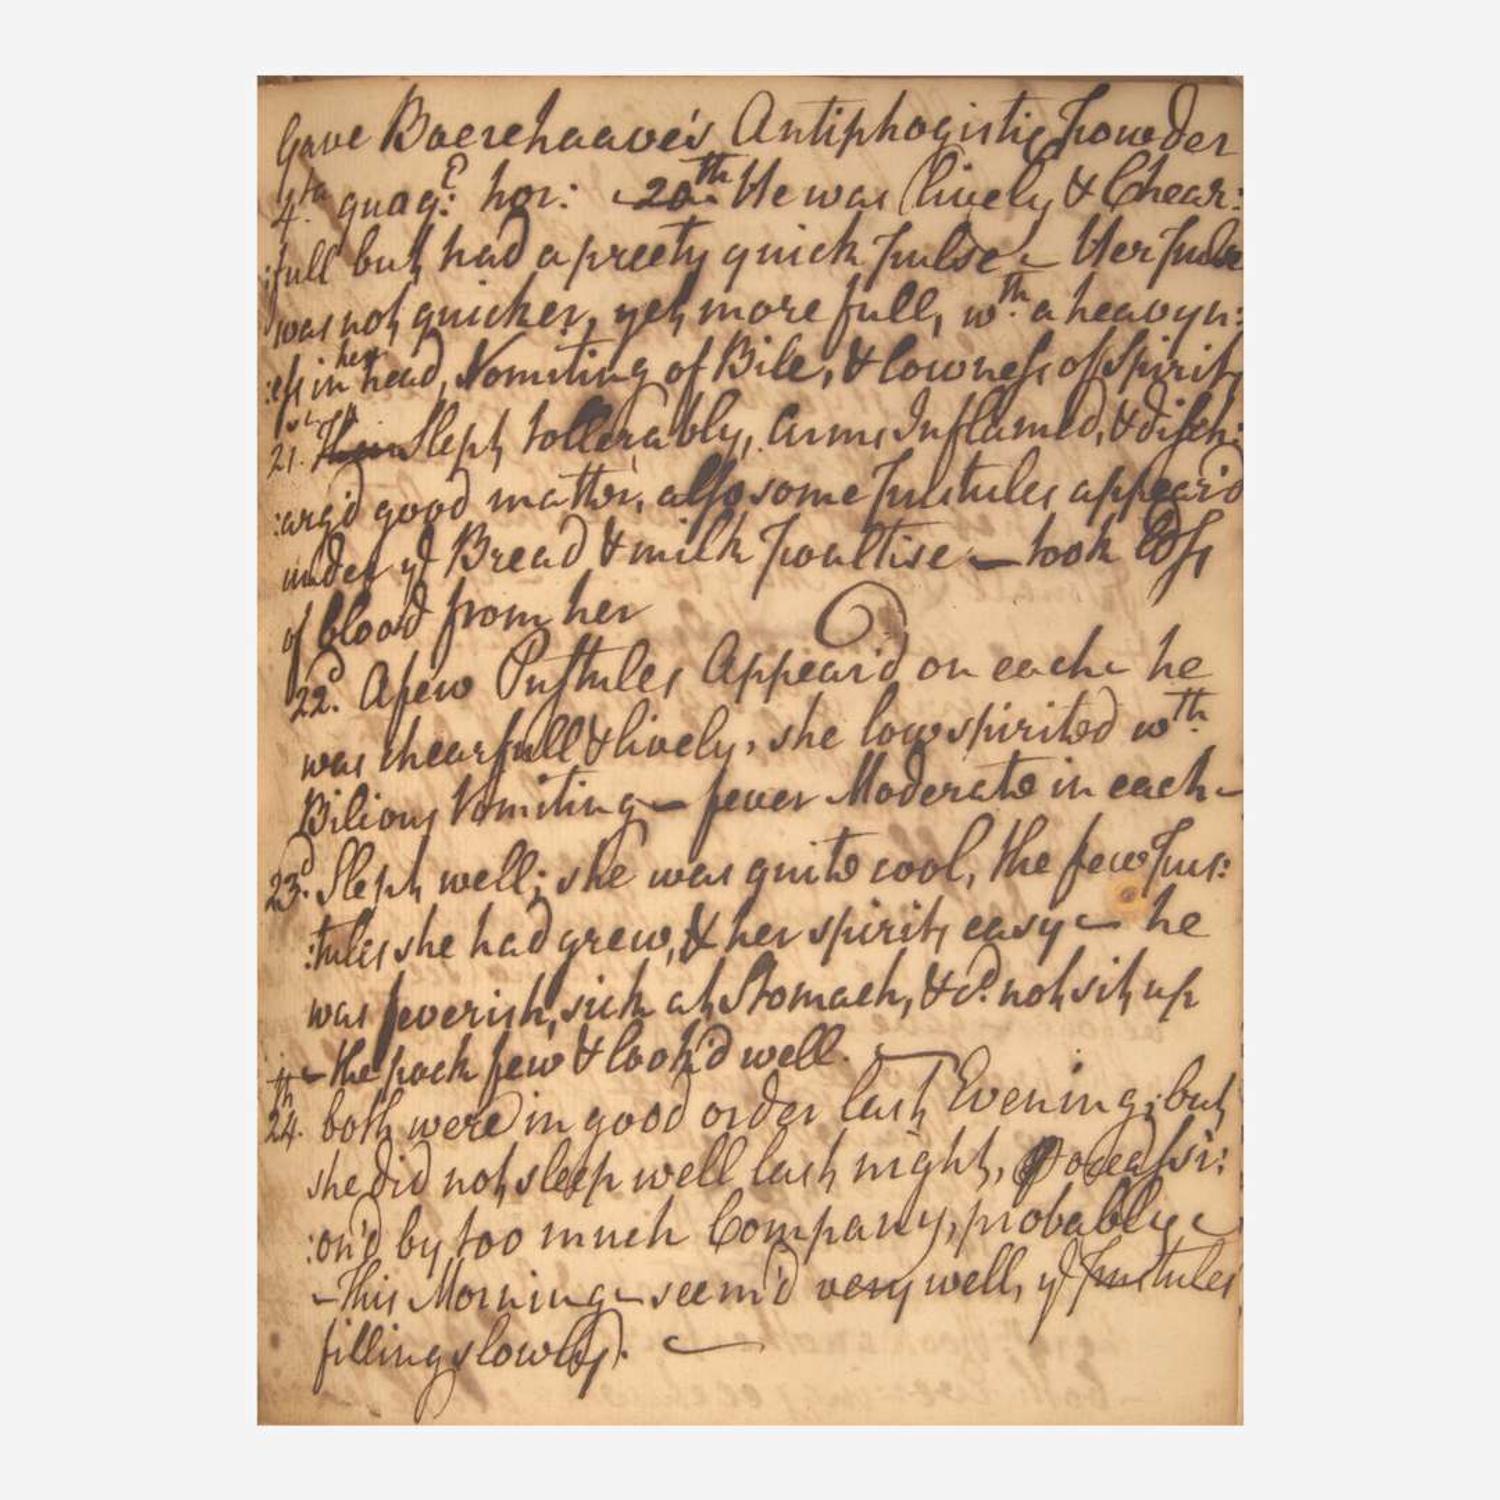 Gave Boerehaave's Antiphogistic Powder
4.ta quaq:e hor: 20.th He was lively & Chear:
:full but had a preety quick pulse – Her pulse
was not quicker, yet more full, w.th a heavyn:
:ess in her head, Vomiting of Bile, & lowness of Spirits
21. Slept tollerably, arms Inflamed, & disch:
:arg'd good matter, also some Pustules appear'd
under ye Bread & milk Poultise – took
of blood from her
22.d A few Pustules Appear'd on each – he
was chearfull & lively, she low spirited w.th
Bilious Vomiting – fever Moderate in each –
23.d Slept well; she was quite cool, the few Pus:
:tules she had grew, & her spirits easy – he
was feverish, sick at Stomach, & c.d not sit up
– the pock few & look'd well. –
24.th both were in good order last Evening; but
she did not sleep well last night, occassi:
:on'd by too much Company, probably –
– This Morning – seem'd very well, ye Pustules
filling slowly. –